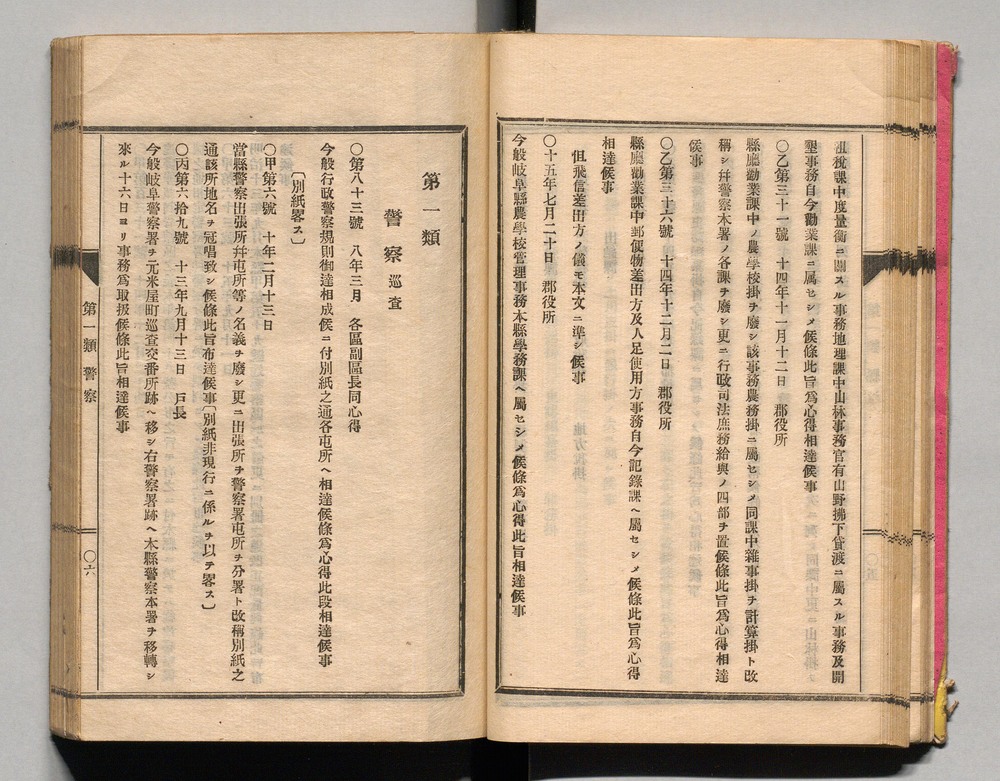 租稅課中度量衡ニ關スル事務地理課中山林事務官有山野拂下貸渡ニ屬スル事務及開
墾事務自今勸業課ニ屬セシメ候條此旨爲心得相達候事
〇乙第三十一號　十四年十一月十二日　郡役所
縣廳勸業課中ノ農學校掛ヲ廢シ該事務農務掛ニ屬セシメ同課中雜事掛ヲ計算掛ト改
稱シ幷警察本署ノ各課ヲ廢シ更ニ行政司法庶務給與ノ四部ヲ置候條此旨爲心得相達
候事
〇乙第三十六號　十四年十二月二日　郡役所
縣廳勸業課中郵便物差出方及人足使用方事務自今記錄課ヘ屬セシメ候條此旨爲心得
相達候事
但飛信差出方ノ儀モ本文ニ準シ候事
〇十五年七月二十日　郡役所
今般岐阜縣農學校管理事務本縣學務課ヘ屬セシメ候條爲心得此旨相達候事
第一類
警察巡査
〇第八十三號　八年三月　各區副區長同心得
今般行政警察規則御達相成候ニ付別紙之通各屯所ヘ相達候條爲心得此段相達候事
〔別紙畧ス〕
〇甲第六號　十年二月十三日
當縣警察出張所幷屯所等ノ名義ヲ廢シ更ニ出張所ヲ警察署屯所ヲ分署ト改稱別紙之
通該所地名ヲ冠唱致シ候條此旨布達候事〔別紙非現行ニ係ルヲ以テ畧ス〕
〇丙第六拾九號　十三年九月十三日　戶長
今般岐阜警察署ヲ元米屋町巡査交番所跡ヘ移シ右警察署跡ヘ本縣警察本署ヲ移轉シ
來ル十六日ヨリ事務爲取扱候條此旨相達候事
第一類　警察
〇六